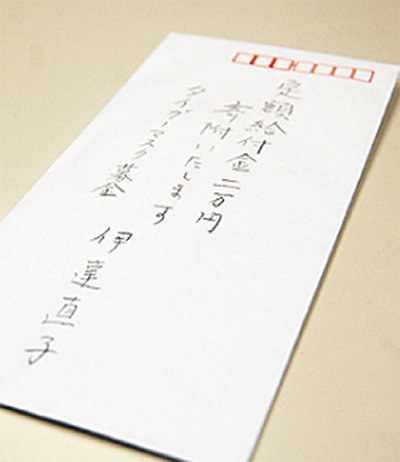 定額給付金二万円
寄附いたします
タイガーマスク募金
伊達直子